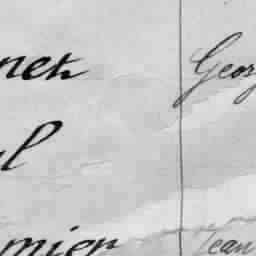 nets Geor
l
mier Jean